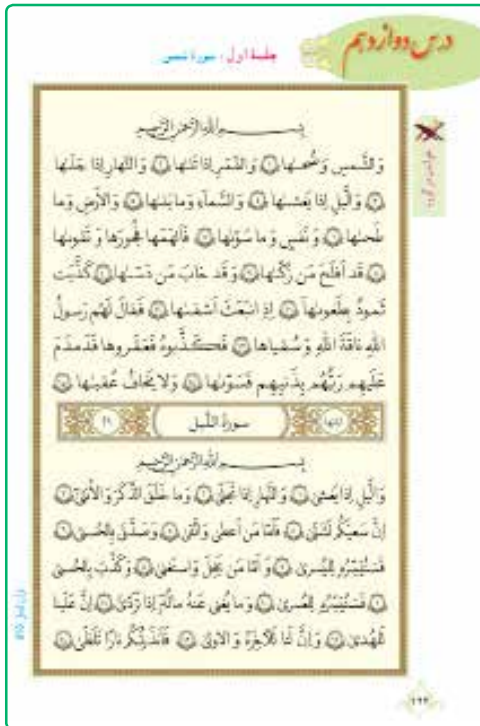 درس دوازدهم
جلسهٔ اول : سورهٔ شمس
بِسمِ اللهِ الرَّحمٰنِ الرَّحیمِ
وَالشَّمسِ وَ ضُحىٰها ۱ وَالقَمَرِ اِذا تَلىٰها ۲ وَالنَّهارِ اِذا جَلّىٰها
۳ وَالَّيلِ اِذا يَغشىٰها ۴ وَالسَّماءِ وَ ما بَنىٰها ۵ وَالاَرضِ وَ ما
طَحىٰها ۶ وَ نَفسٍ وَ ما سَوّىٰها ۷ فَاَلهَمَها فُجورَها وَ تَقوىٰها
۸ قَد اَفلَحَ مَن زَكّىٰها ۹ وَ قَد خابَ مَن دَسّىٰها ۱۰ كَذَّبَت
ثَمودُ بِطَغوىٰها ۱۱ اِذِ انبَعَثَ اَشقىٰها ۱۲ فَقالَ لَهُم رَسولُ
اللهِ ناقَةَ اللهِ وَ سُقياها ۱۳ فَكَذَّبوهُ فَعَقَروها فَدَمدَمَ
عَلَيهِم رَبُّهُم بِذَنبِهِم فَسَوّىٰها ۱۴ وَ لا يَخافُ عُقبىٰها ۱۵
سورة اللیل
بِسمِ اللهِ الرَّحمٰنِ الرَّحیمِ
وَالَّيلِ اِذا يَغشىٰ ۱ وَالنَّهارِ اِذا تَجَلّىٰ ۲ وَ ما خَلَقَ الذَّكَرَ وَ الاُنثىٰ ۳
اِنَّ سَعيَكُم لَشَتّىٰ ۴ فَاَمّا مَن اَعطىٰ وَ اتَّقىٰ ۵ وَ صَدَّقَ بِالحُسنىٰ ۶
فَسَنُيَسِّرُهُ لِليُسرىٰ ۷ وَ اَمّا مَن بَخِلَ وَ استَغنىٰ ۸ وَ كَذَّبَ بِالحُسنىٰ
۹ فَسَنُيَسِّرُهُ لِلعُسرىٰ ۱۰ وَ ما يُغنى عَنهُ مالُهُ اِذا تَرَدّىٰ ۱۱ اِنَّ عَلَينا
لَلهُدىٰ ۱۲ وَ اِنَّ لَنا لَلآخِرَةَ وَ الاولىٰ ۱۳ فَاَنذَرتُكُم نارًا تَلَظّىٰ ۱۴